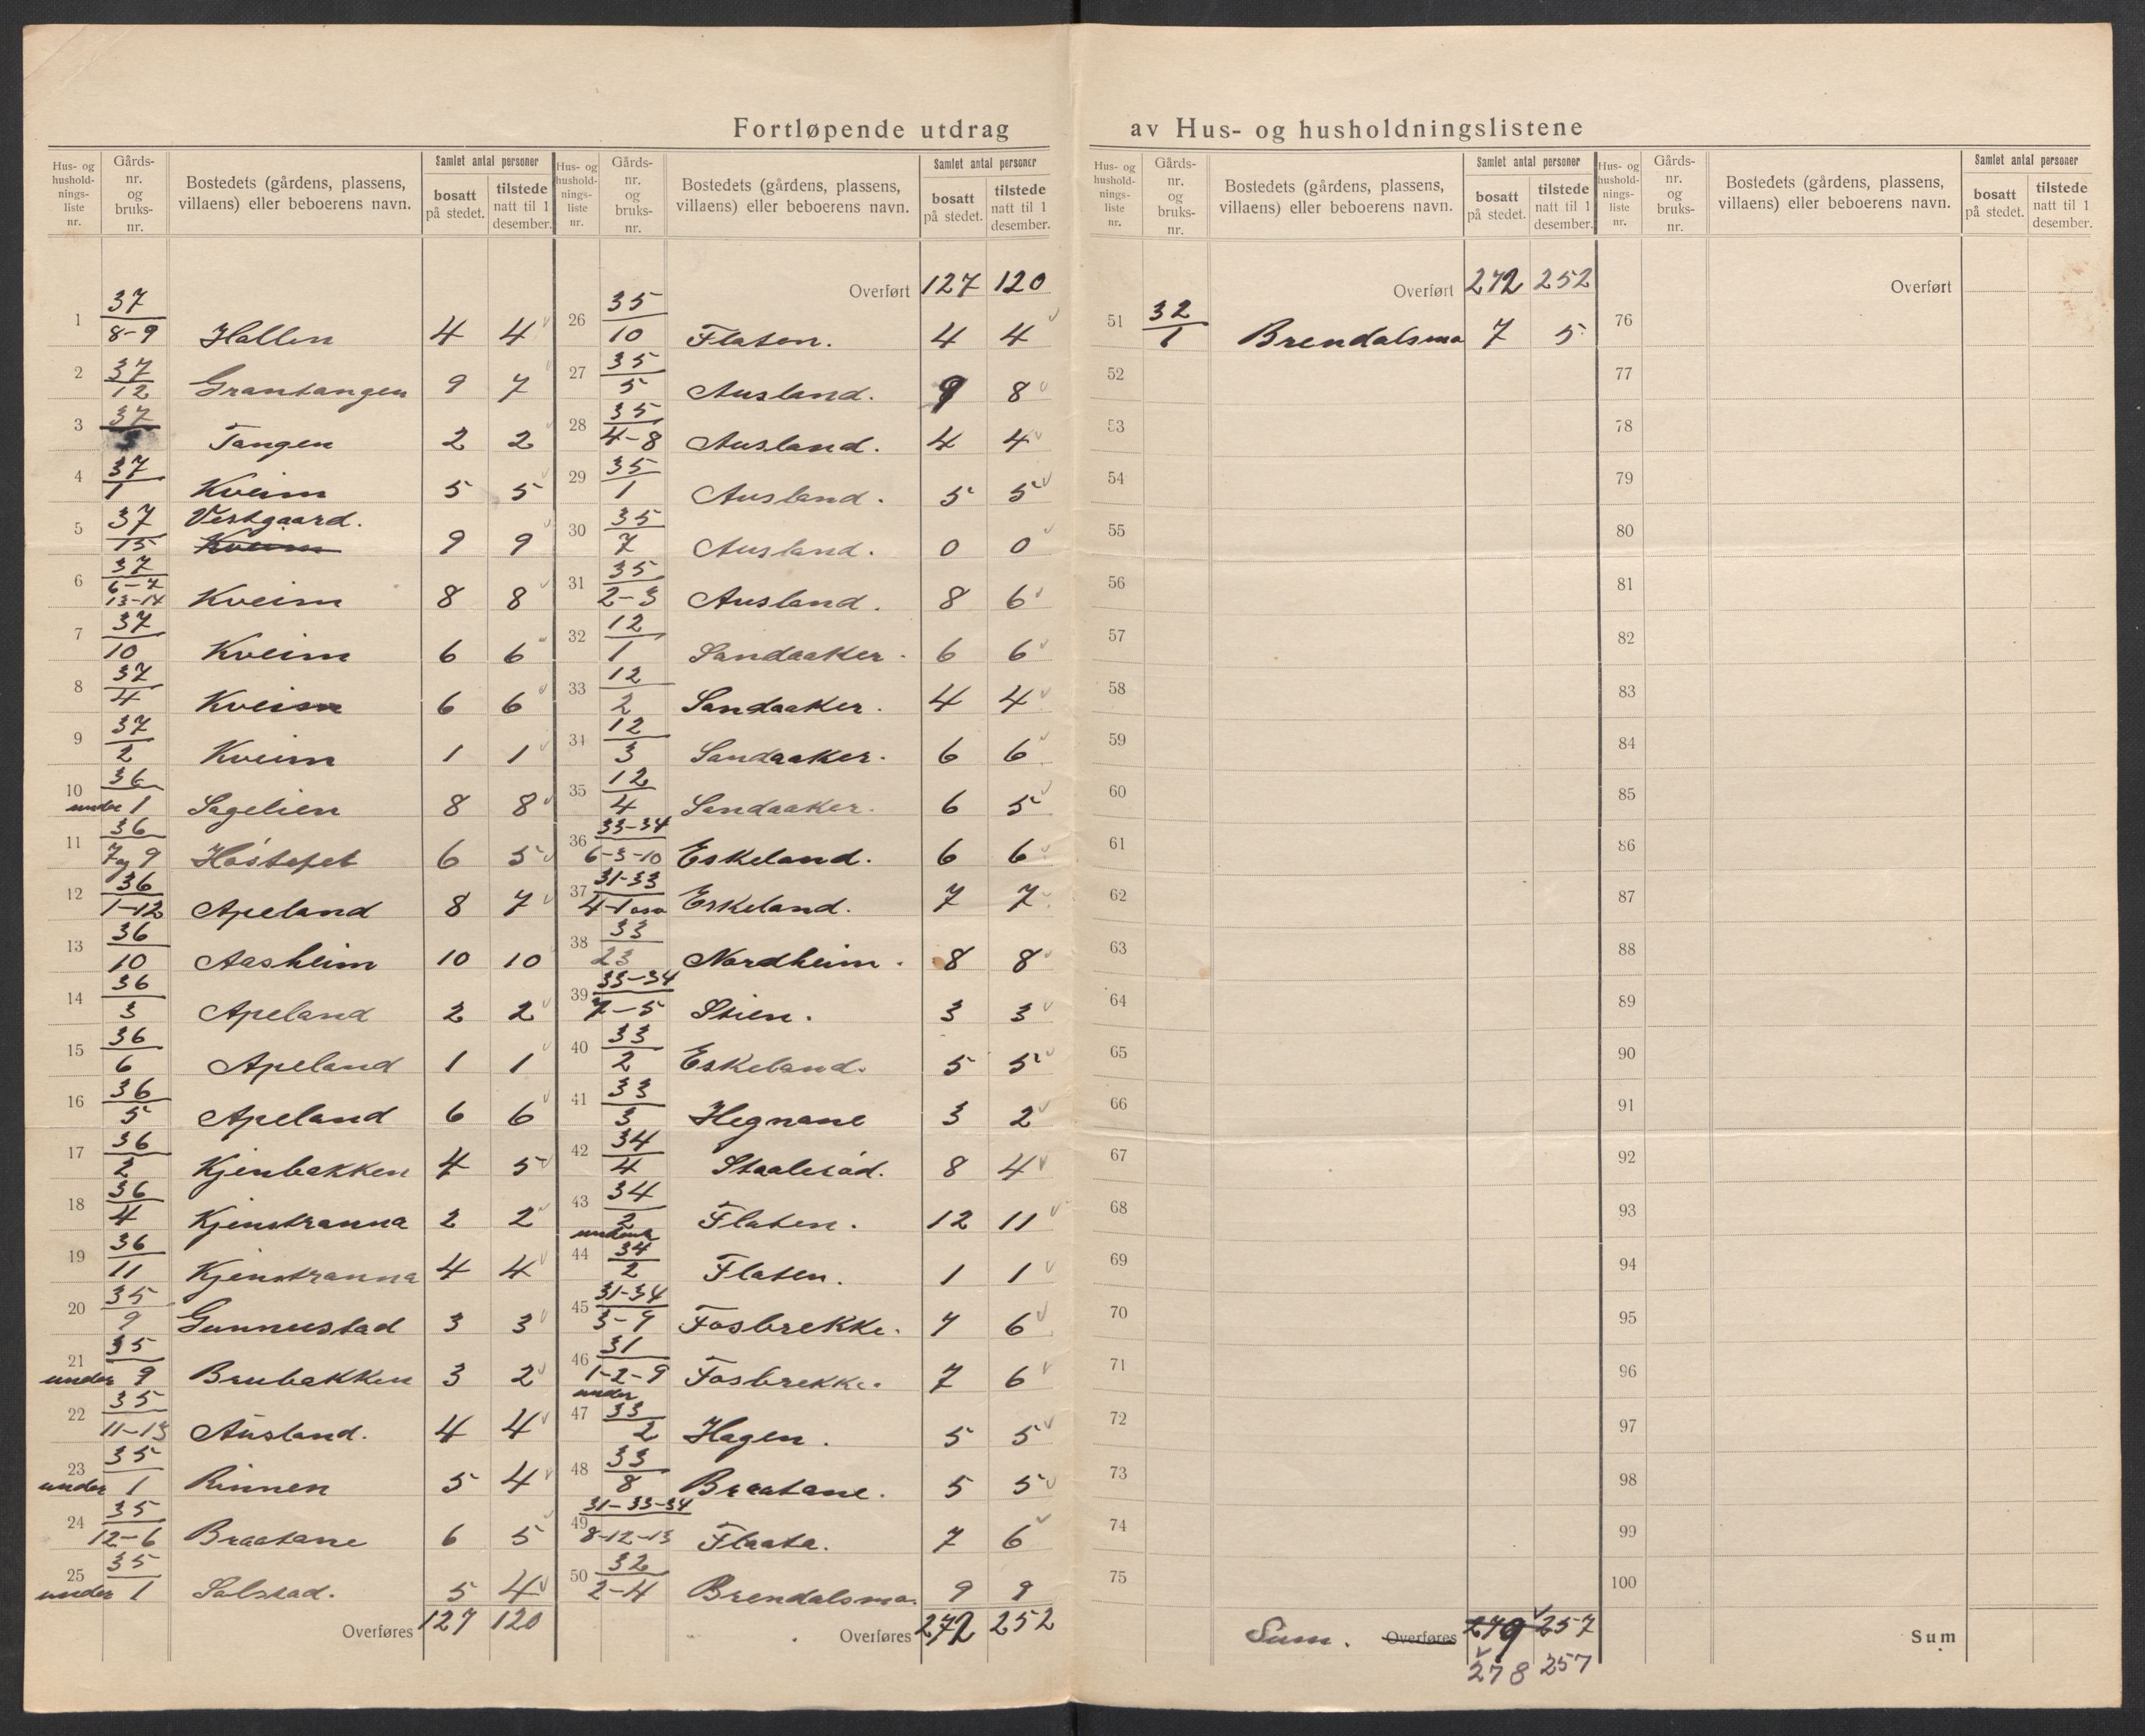 Fortløpende utdrag av Hus- og husholdningslistene
Hus- og husholdningsliste nr. Gårdsnr. og bruksnr. Bostedets (gårdens, plassens, villaens) eller beboerens navn. Samlet antal personer bosatt på stedet. tilstede natt til 1 desember.
1 37/8-9 Hallen 4 4
2 37/12 Grantangen 9 7
3 37 Tangen 2 2
4 37/1 Kveim 5 5
5 37/15 Vestgaard. Kveim 9 9
6 37/6-7 13-14 Kveim 8 8
7 37/10 Kveim 6 6
8 37/4 Kveim 6 6
9 37/2 Kveim 1 1
10 36/under 1 Sagelien 8 8
11 36/7 og 9 Høstepet 6 5
12 36/1-12 Apeland 8 7
13 36/10 Aasheim 10 10
14 36/3 Apeland 2 2
15 36/6 Apeland 1 1
16 36/5 Apeland 6 6
17 36/2 Kjenbakken 4 5
18 36/4 Kjenstranna 2 2
19 36/11 Kjenstranna 4 4
20 35/9 Gunnestad 3 3
21 35/under 9 Brubakken 3 2
22 35/11-13 Ausland. 4 4
23 35/under 1 Rinnen 5 4
24 35/12-6 Braatane 6 5
25 35/under 1 Solstad. 5 4
Overføres 127 120
Hus- og husholdningsliste nr. Gårdsnr. og bruksnr. Bostedets (gårdens, plassens, villaens) eller beboerens navn. Samlet antal personer bosatt på stedet. tilstede natt til 1 desember.
Overført 127 120
26 35/10 Flaten. 4 4
27 35/5 Ausland. 9 8
28 35/4-8 Ausland. 4 4
29 35/1 Ausland. 5 5
30 35/7 Ausland. 0 0
31 35/2-3 Ausland. 8 6
32 12/1 Sandaaker. 6 6
33 12/2 Sandaaker. 4 4
34 12/3 Sandaaker. 6 6
35 12/4 Sandaaker. 6 5
36 33-34/6-3-10 Eskeland. 6 6
37 31-33/4-1 Eskeland. 7 7
38 33/23 Nordheim. 8 8
39 33-34/7-5 Stien. 3 3
40 33/2 Eskeland. 5 5
41 33/3 Hegnane 3 2
42 34/4 Staalesød. 8 4
43 34/2 Flaten. 12 11
44 under 34/2 Flaten. 1 1
45 31-34/3-7 Fosbrekke. 7 6
46 31/1-2-9 Fosbrekke. 7 6
47 under 33/2 Hagen. 5 5
48 33/8 Braatane. 5 5
49 31-33-34/8-12-13 Flaata. 7 6
50 32/2-4 Brendalsmo. 9 9
Overføres 272 252
Hus- og husholdningsliste nr. Gårdsnr. og bruksnr. Bostedets (gårdens, plassens, villaens) eller beboerens navn. Samlet antal personer bosatt på stedet. tilstede natt til 1 desember.
Overført 272 252
51 32/1 Brendalsmo 7 5
52
53
54
55
56
57
58
59
60
61
62
63
64
65
66
67
68
69
70
71
72
73
74
75
Sum. Overføres 279 257
278 257
Hus- og husholdningsliste nr. Gårdsnr. og bruksnr. Bostedets (gårdens, plassens, villaens) eller beboerens navn. Samlet antal personer bosatt på stedet. tilstede natt til 1 desember.
Overført
76
77
78
79
80
81
82
83
84
85
86
87
88
89
90
91
92
93
94
95
96
97
98
99
100
Sum